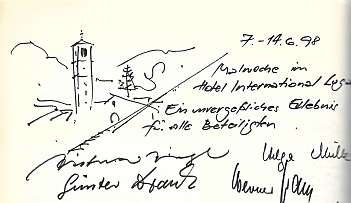 7.-14.6.98
Malwoche im
Hotel International Lug
Ein unvergeßliches Erlebnis
für alle Beteiligten.
Helga
Günter
Werner